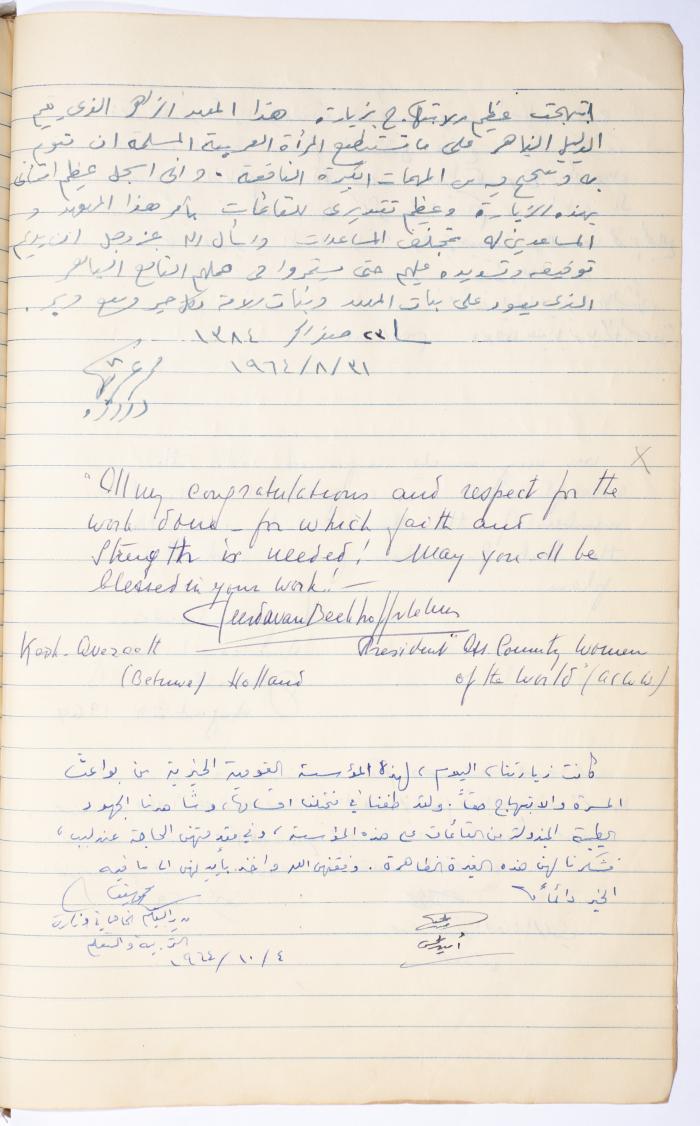 ابتهجت عظيم الابتهاج بزيارة هذا المعهد الزاهر الذي يقيم
الدليل الباهر على ما تستطيع المرأة العربية المسلمة ان تقوم
به وتنجح فيه من المهمات الكبيرة النافعة . واني اسجل عظيم امتناني
بهذه الزيارة وعظيم تقديري للقائمات بأمر هذا المعهد و
المساعدين له بمختلف المساعدات واسأل الله عز وجل ان يديم
توفيقه وتسديده عليهم حتى يستمروا في عملهم النافع الباهر
الذي يعود على بنات المعهد وبنات الامة بكل خير
٢٣ ١٣٨٤
١٩٦٤/٨/٣١
دروزه
X
"All my congratulations and respect for the
work done - for which faith and
strength is needed! May you all be
blessed in your work!" —
Kesh-Avezaeth
President "Ass County Women
(Betuwe) Holland
of the World" (ACWW)
كانت زيارتنا، اليوم، لهذه المؤسسة القومية الخيرية من بواعث
المسرة والابتهاج حقاً. ولقد طفنا في مختلف اقسامها، وشاهدنا الجهود
الطيبة المبذولة من القائمات على هذه المؤسسة، وفي مقدمتهن الحاجة عندليب،
فشكرنا لهن هذه الغيرة الظاهرة. وفقهن الله واخذ بأيديهن الى ما فيه
الخير دائماً
مدير التعليم الخاص في وزارة
التربية والتعليم
١٩٦٤/١٠/٤